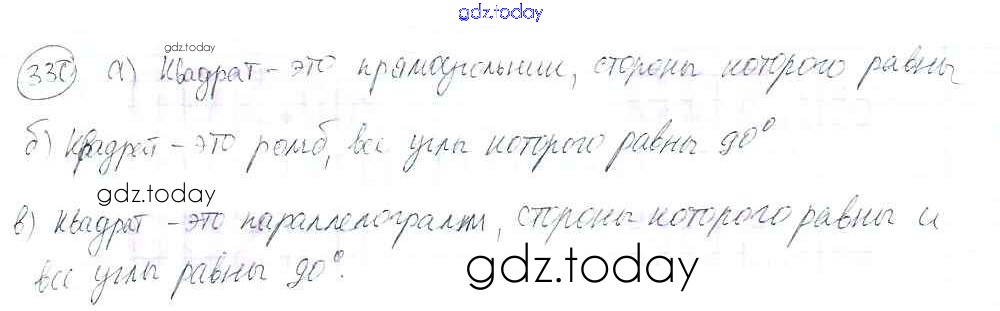 gdz.today
gdz.today
330 а) Квадрат - это прямоугольник, стороны которого равны
б) Квадрат - это ромб, все углы которого равны 90°
gdz.today
в) Квадрат - это параллелограмм, стороны которого равны и
все углы равны 90°.
gdz.today